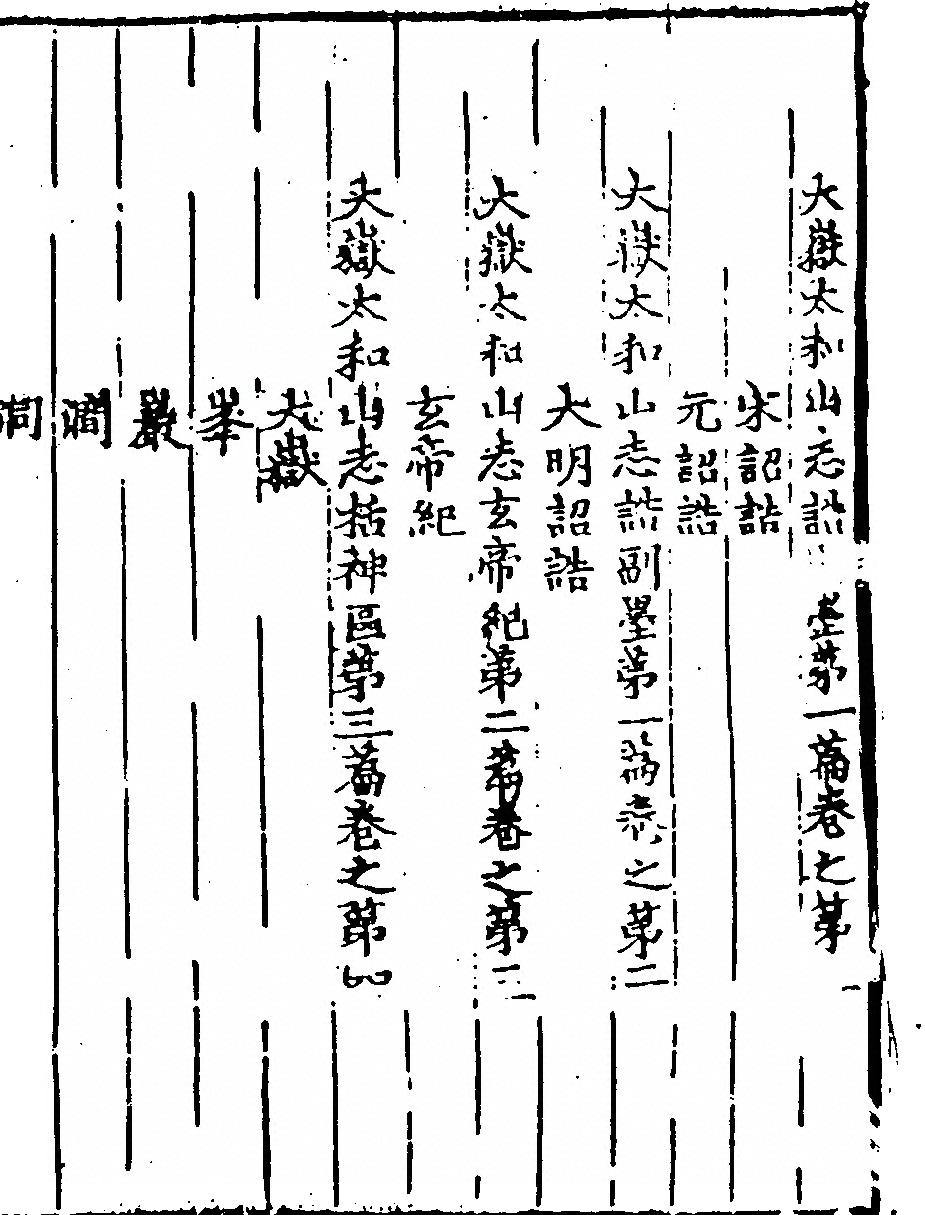 大嶽太和山志誥 墨第一篇卷之第一
宋詔誥
元詔誥
大嶽太和山志誥副墨第一篇卷之第二
大明詔誥
大嶽太和山志玄帝紀第二篇卷之第三
玄帝紀
大嶽太和山志括神區第三篇卷之第四
大嶽
峯
巖
澗
洞